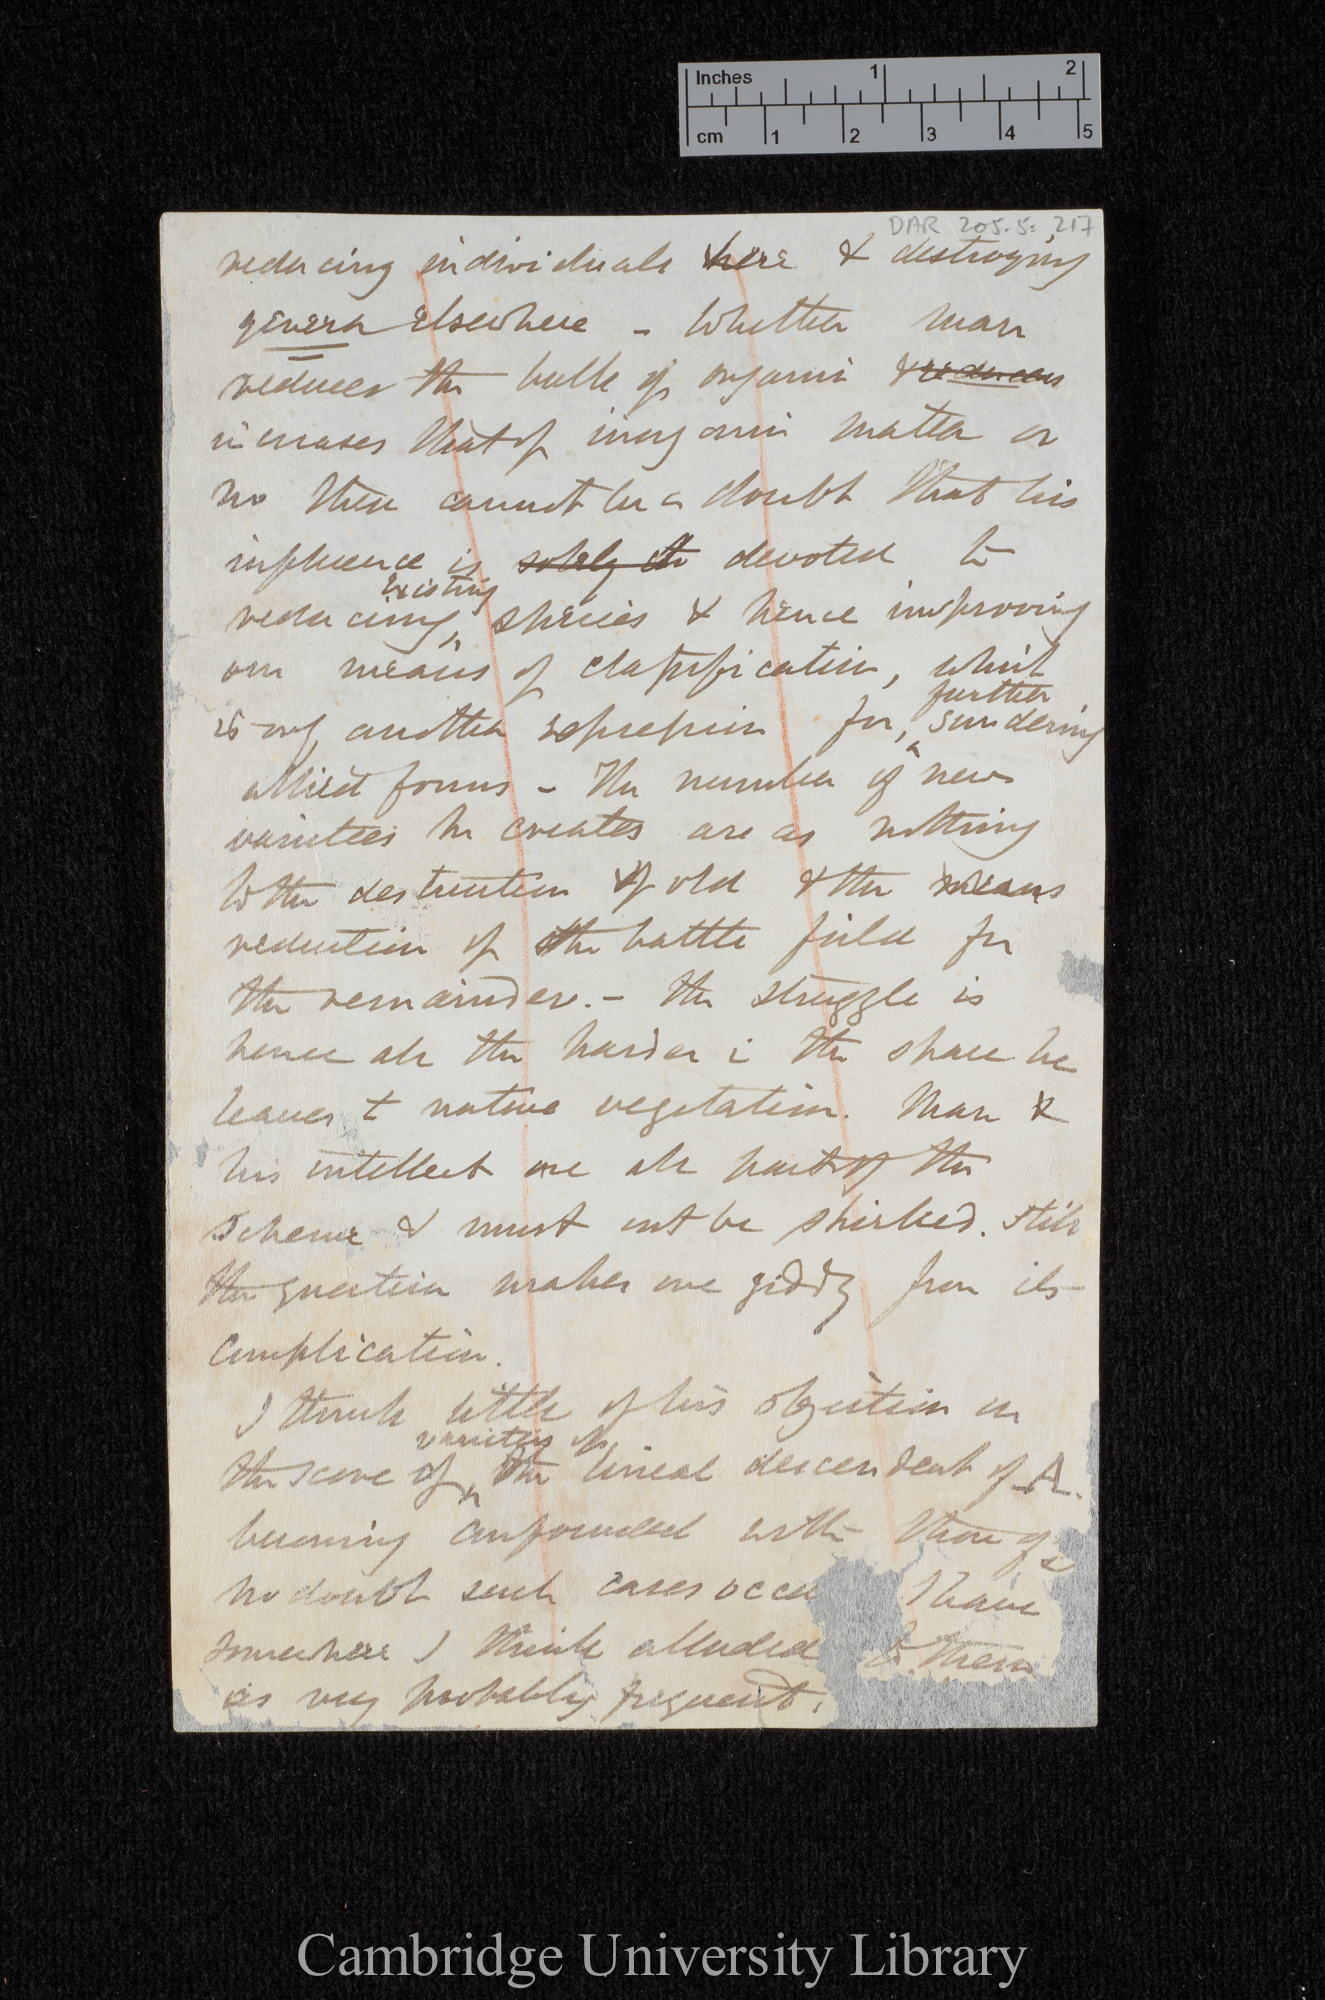 Inches 1 2
cm 1 2 3 4 5
DAR 205.5: 217
reducing individuals here & destroying
genera elsewhere – Whether man
reduces the bulk of organic & reduces
increases that of inorganic matter or
no there cannot be a doubt that his
influence is solely to devoted to
existing
reducing species & hence improving
our means of classification, which
further
is only another expression for, sundering
allied forms – The number of new
varieties he creates are as nothing
to the destruction of old & the means
reduction of the battle field for
the remainder. – the struggle is
hence all the harder i the space he
leaves t native vegetation. Man &
his intellect are all part of the
scheme & must not be shirked. Still
the question makes one giddy from its
complication.
I think little of his objection on
varieties of
the score of the lineal descendent of A.
becoming confounded with those of
no doubt such cases occu I have
somewhere I think alluded to them
as very probably frequent.
Cambridge University Library